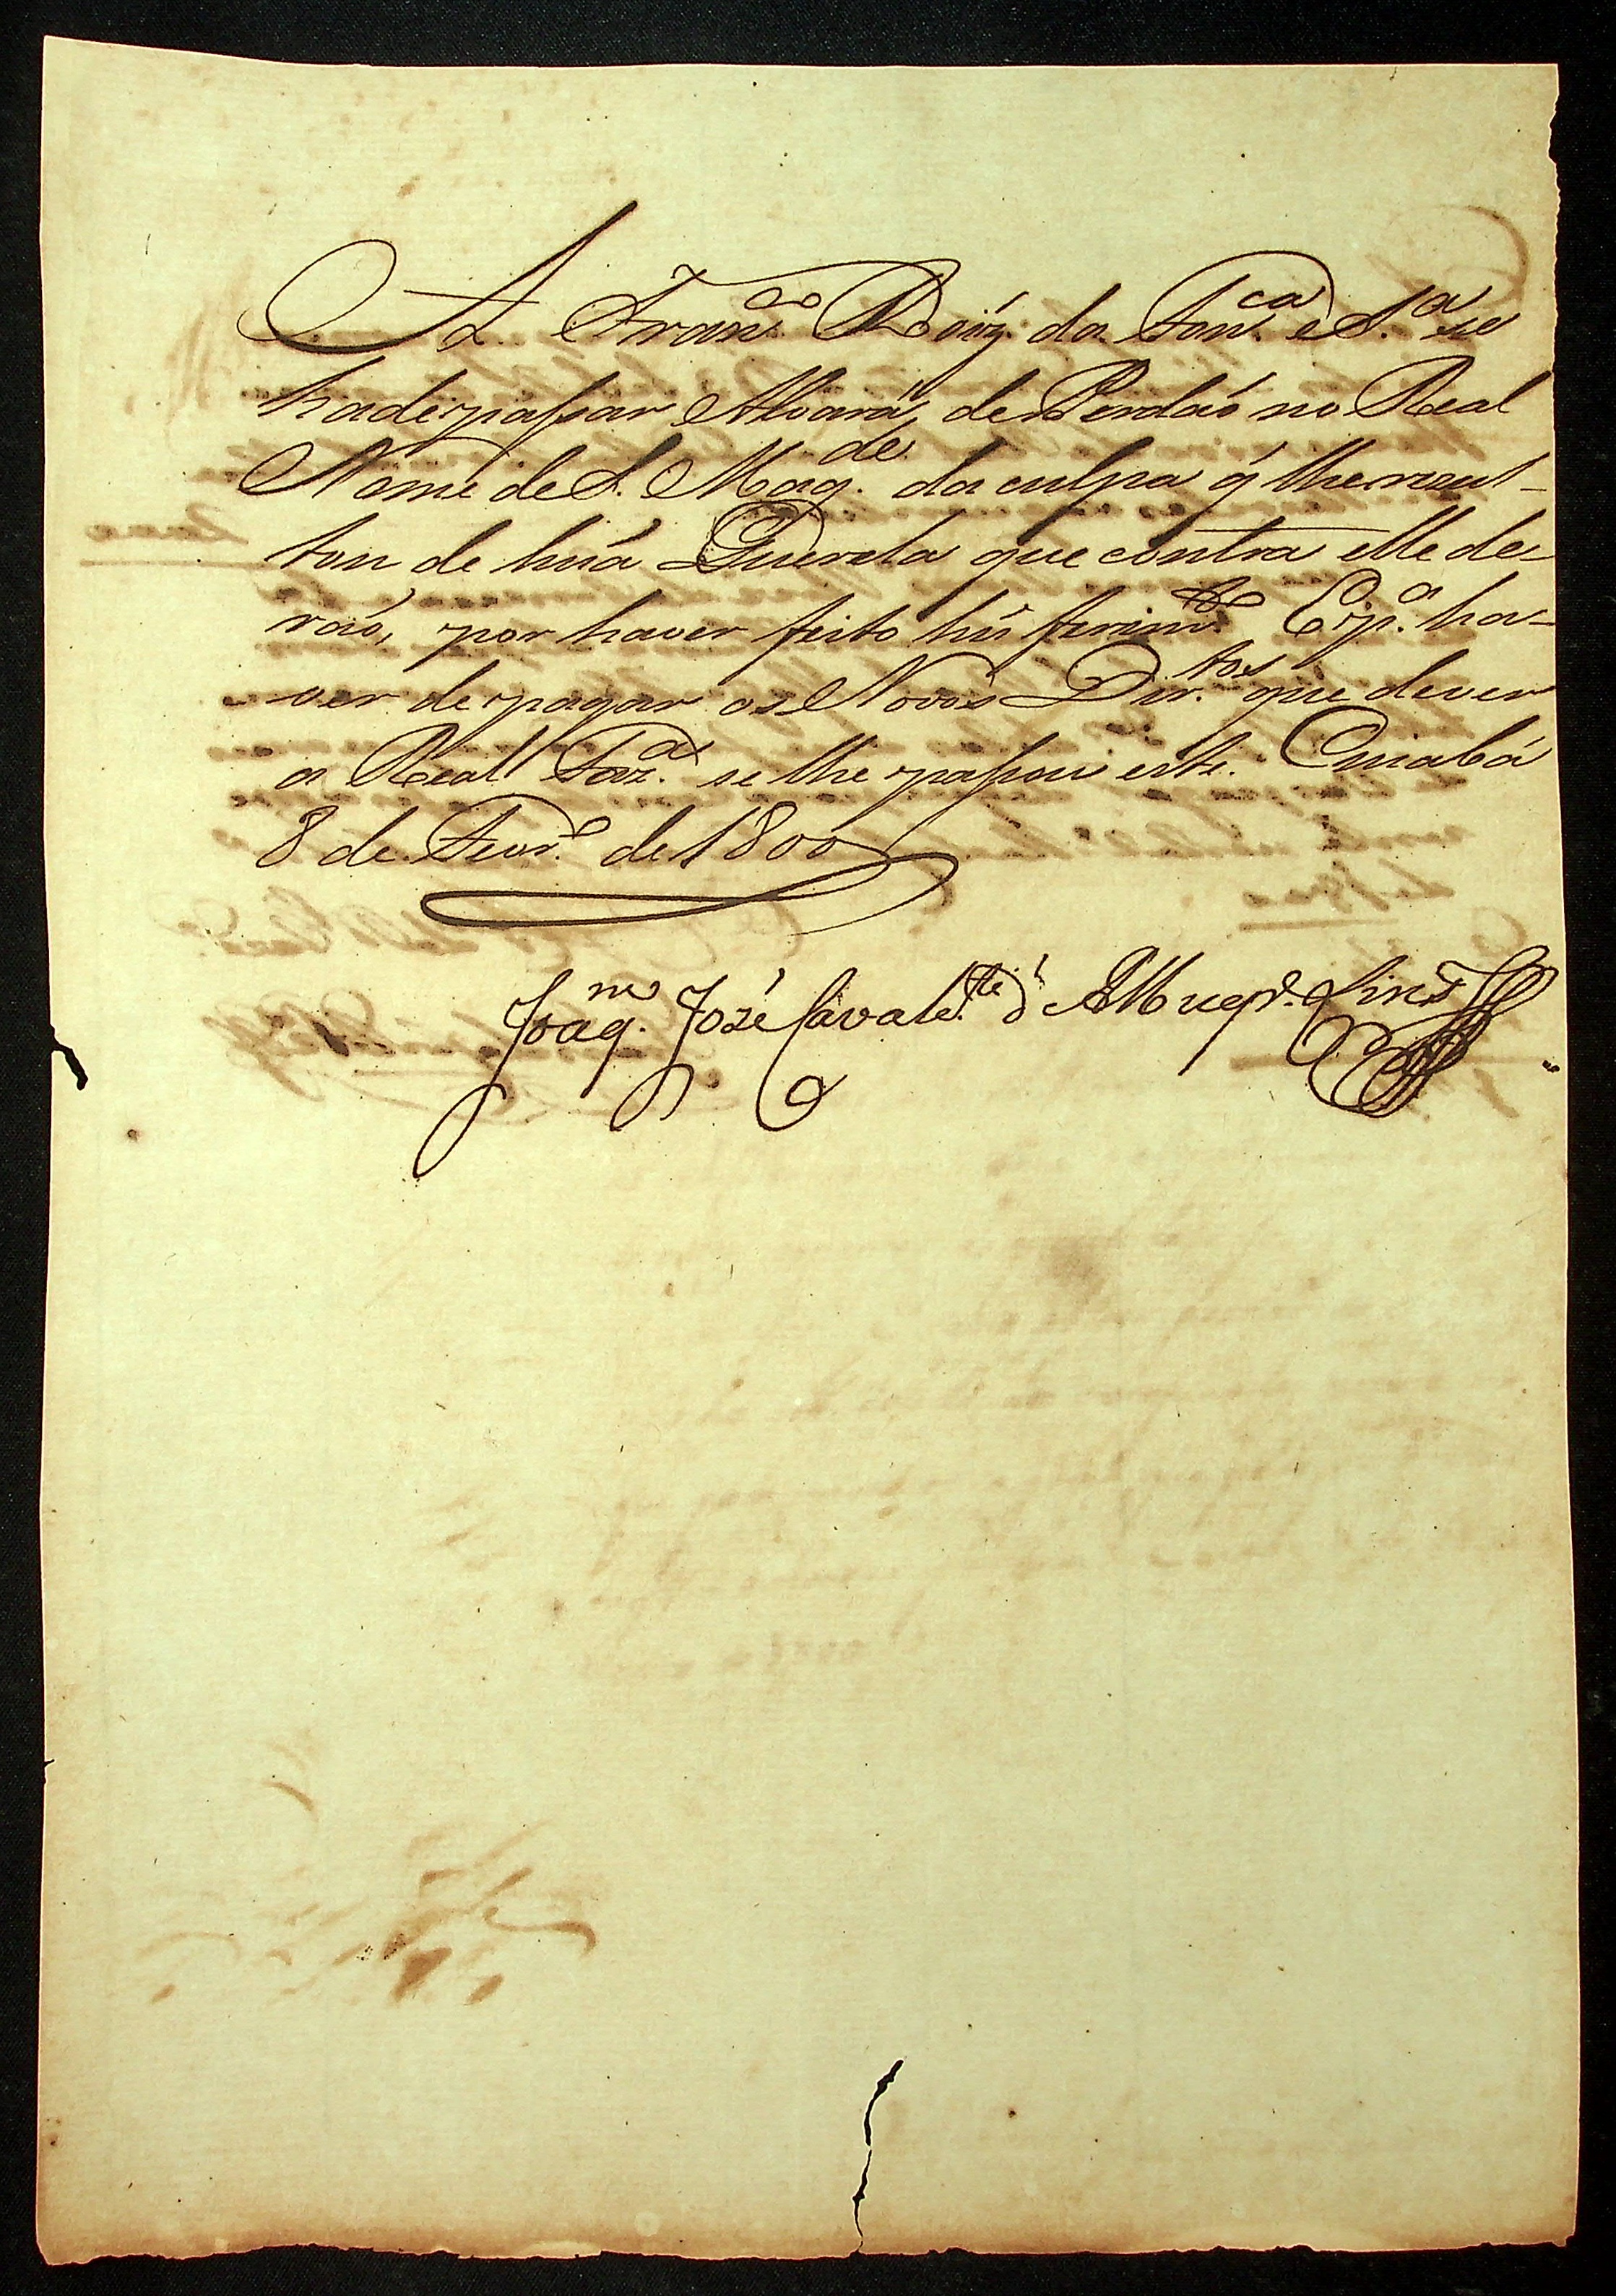 A Fran.co Roiz da Fon.ca e S.a se
hade passar Alvará de Perdaõ no Real
Nome de S. Mag.de da culpa q̃ lhe rezul-
tou de hũa Querela que contra elle de-
raõ, por haver feito hũ ferim.to E p.a ha-
ver de pagar os Novos Dir.tos que dever
a Real Faz.a se lhe passou este. Cuiabá
8 de Fevr.o de 1800
Joaq.m José Cavalc.te d'Albuqr.e Lins